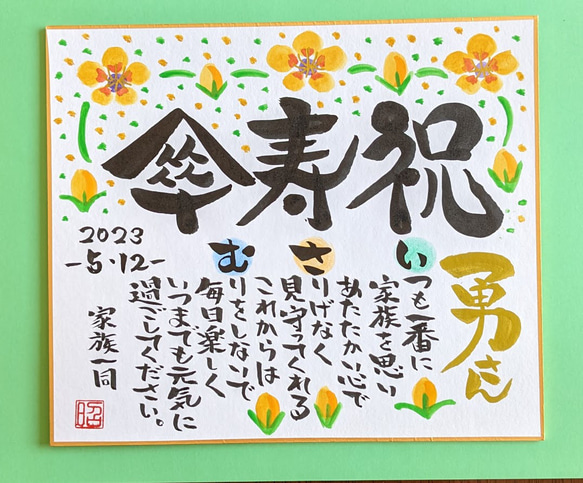 傘寿祝
勇さん
いつも一番に
家族を思い
あたたかい心で
さりげなく
見守ってくれる
これからは
むりをしないで
毎日楽しく
いつまでも元気に
過ごしてください。
2023
-5・12-
家族一同